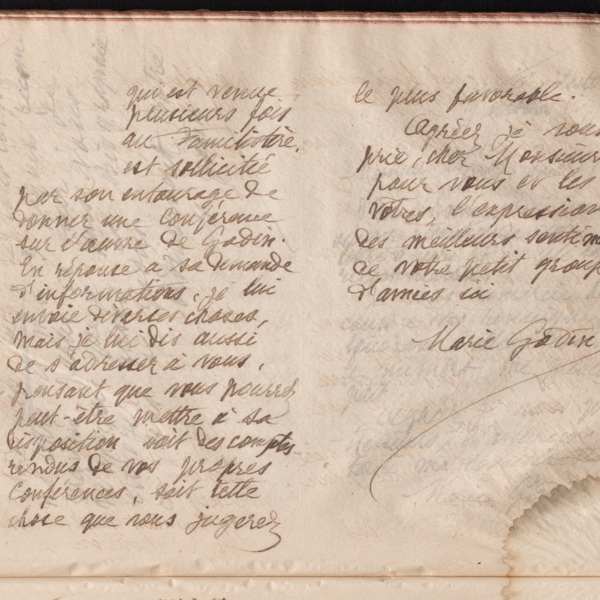 qui est venue
plusieurs fois
au Familistère,
est sollicitié
par son entourage de
donner une conférence
sur l'œuvre de Godin.
En réponse à sa demande
d'informations, je lui
envoie diverses choses,
mais je lui dis aussi
de s'adresser à vous,
pensant que vous pourrez
peut-être mettre à sa
disposition soit des comptes-
rendus de vos propres
conférences, soit telle
chose que vous jugerez
le plus favorable.
Agréez je vous
prie, cher Monsieur
pour vous et les
vôtres, l'expression
des meilleurs sentim
de notre petit group
d'amies ici
Marie Godin